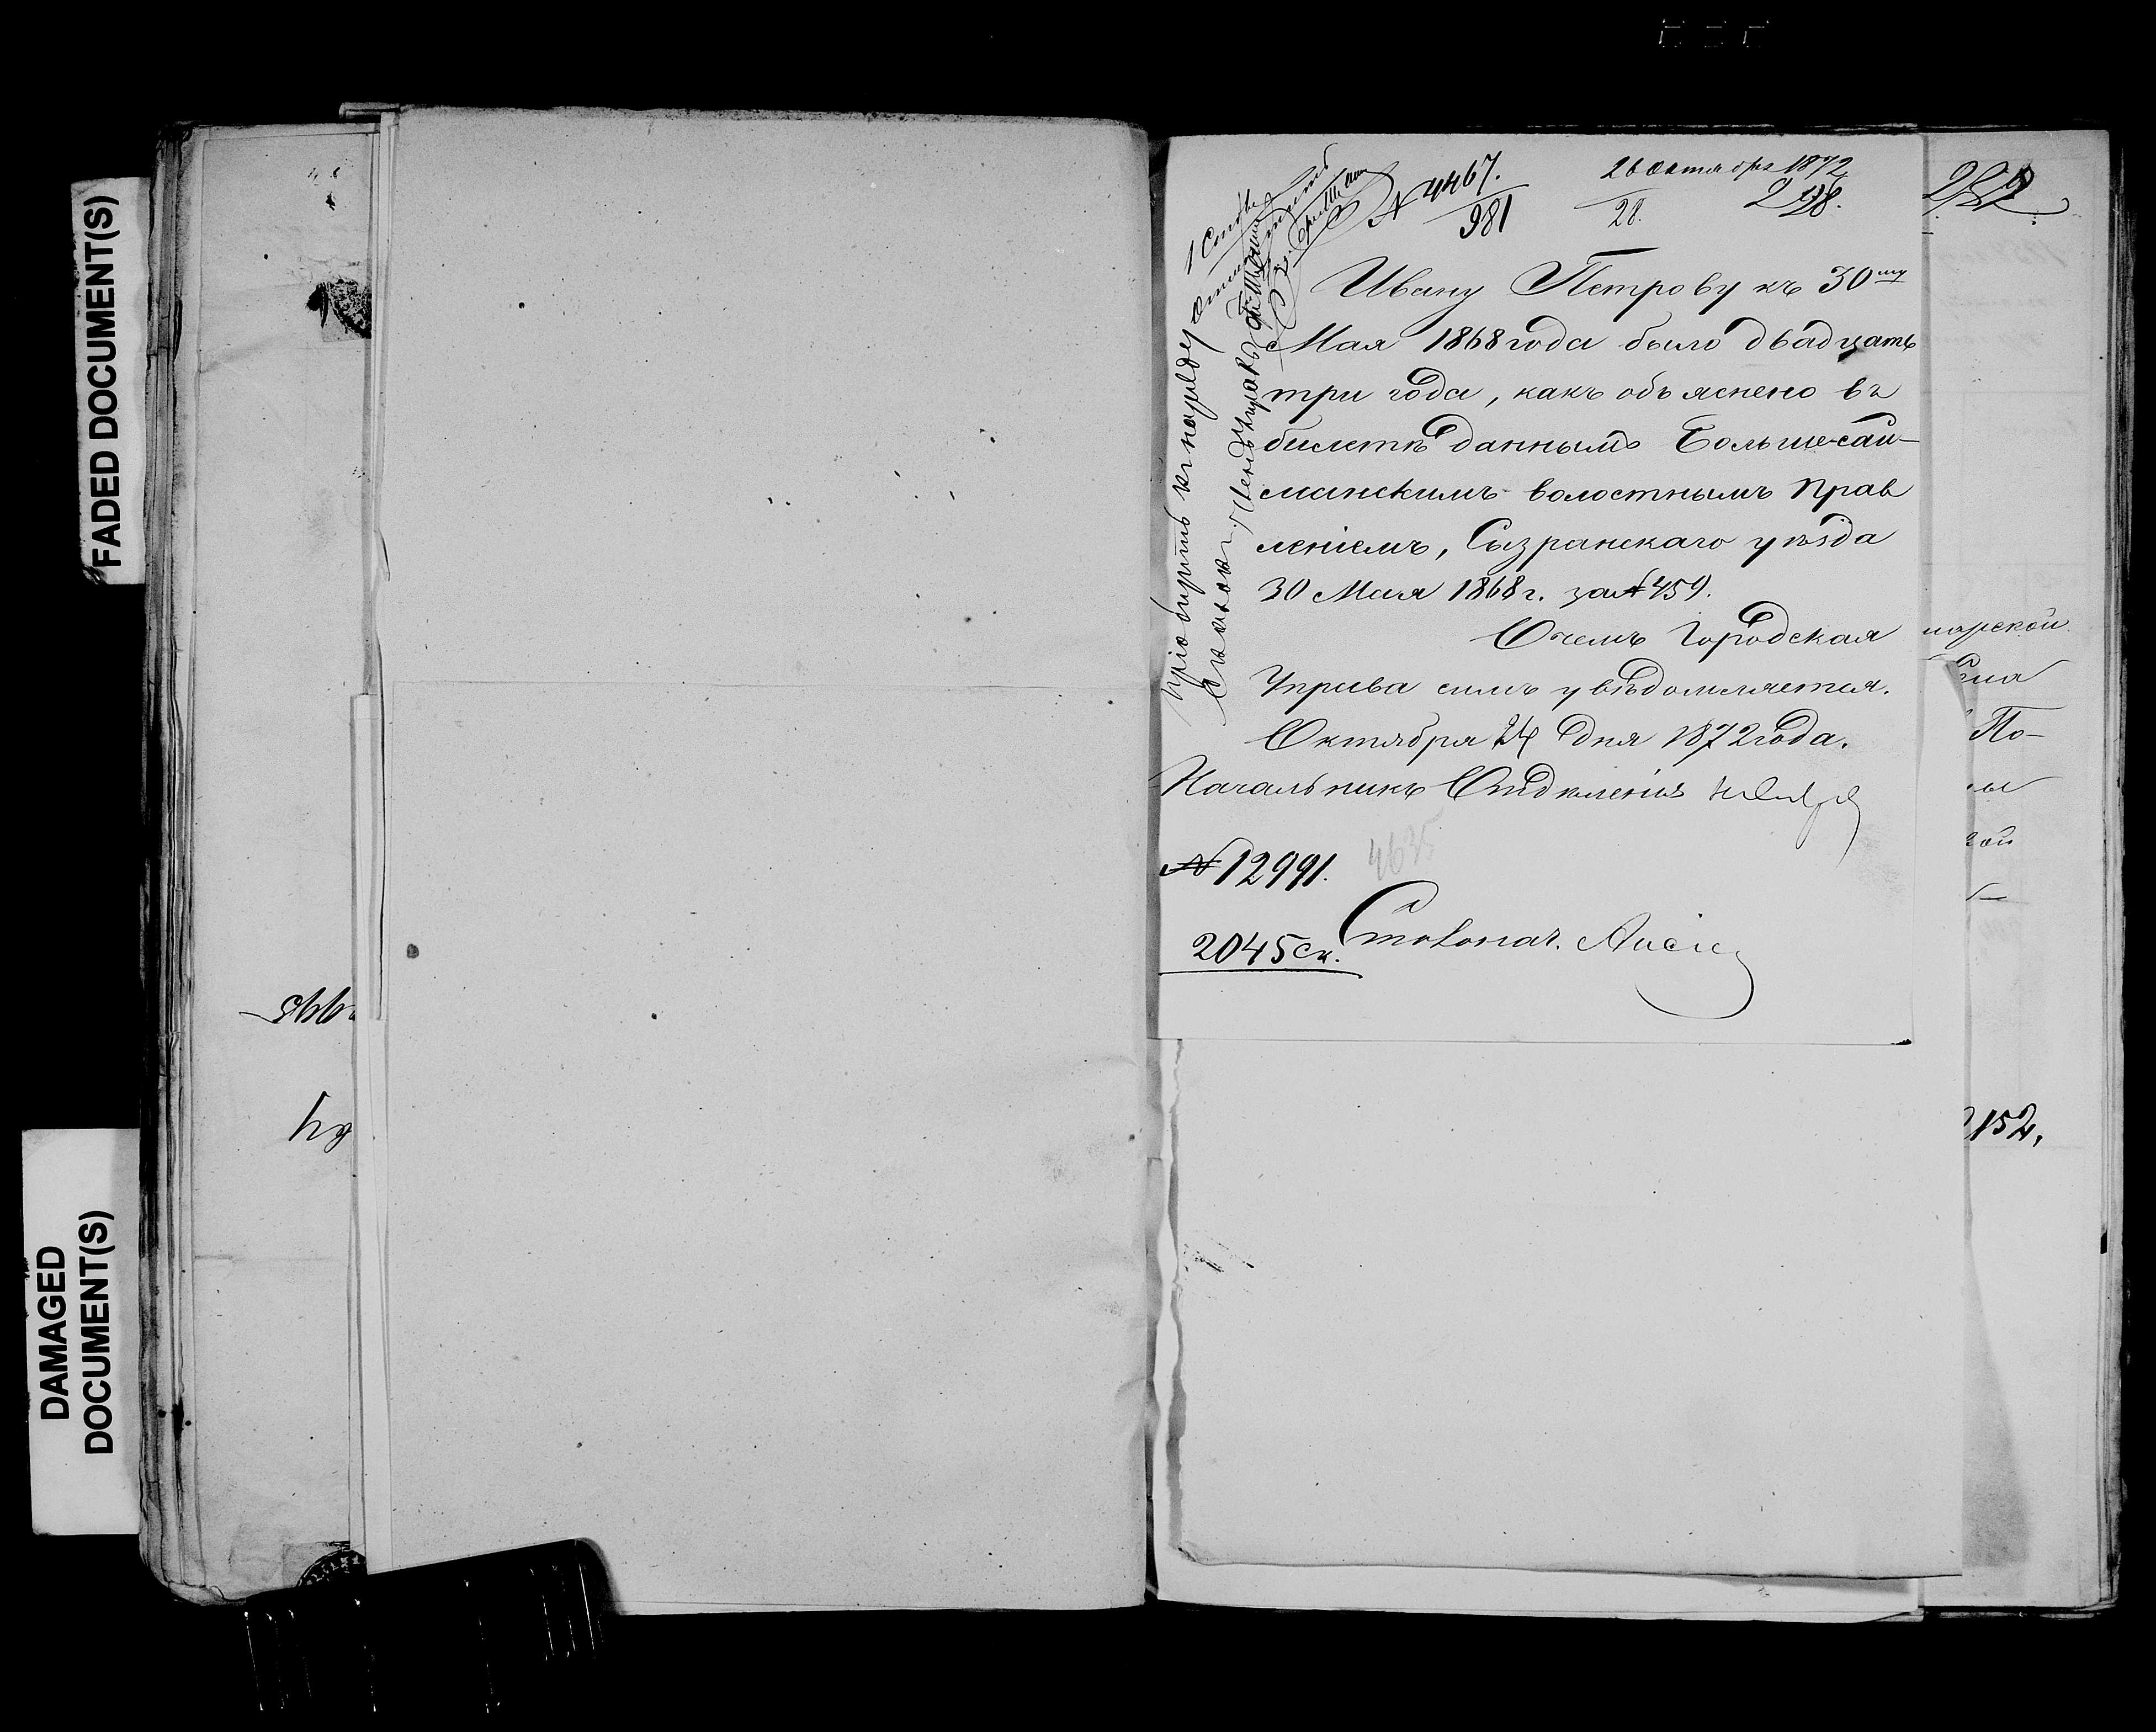 FADED DOCUMENT(S)
DAMAGED
DOCUMENT(S)
№ 4467.
981
26 октября 1872
28.
298.
Ивану Петрову къ 30му
Мая 1868 года было двадцать
три года, какъ объяснено въ
билетѣ даннымъ Больше-сай-
манскимъ волостнымъ Прав
леніемъ, Сызранскаго уѣзда
30 Мая 1868 г. за № 459.
О чемъ Городская
Управа симъ увѣдомляется.
Октября 24 дня 1872 года.
Начальникъ Отдѣленія
№ 12991.
4635
2045 ск.
Столонач.
пріобщить къ наряду
По-
2152,